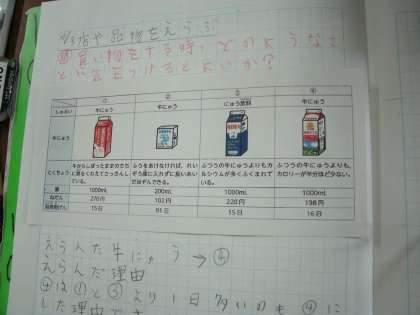 店や品物をえらぶ
買い物をする時、どのようなこ
とに気をつけるとよいか?
① ② ③ ④
しゅるい 牛にゅう 牛にゅう にゅう飲料 牛にゅう
牛にゅう
とくちょう
ふたをあけなければ、れいぞう庫に入れずに長いあいだほぞんできる。
ふつうの牛にゅうよりもカルシウムが多くふくまれている。
ふつうの牛にゅうよりも、カロリーが半分ほど少ない。
量 1000mL 200mL 1000mL 1000mL
ねだん 270円 102円 220円 198円
15日 91日 15日 16日
えらんだ牛にゅう→④
えらんだ理由
④は①と③より1日多いのも④に
した理由です